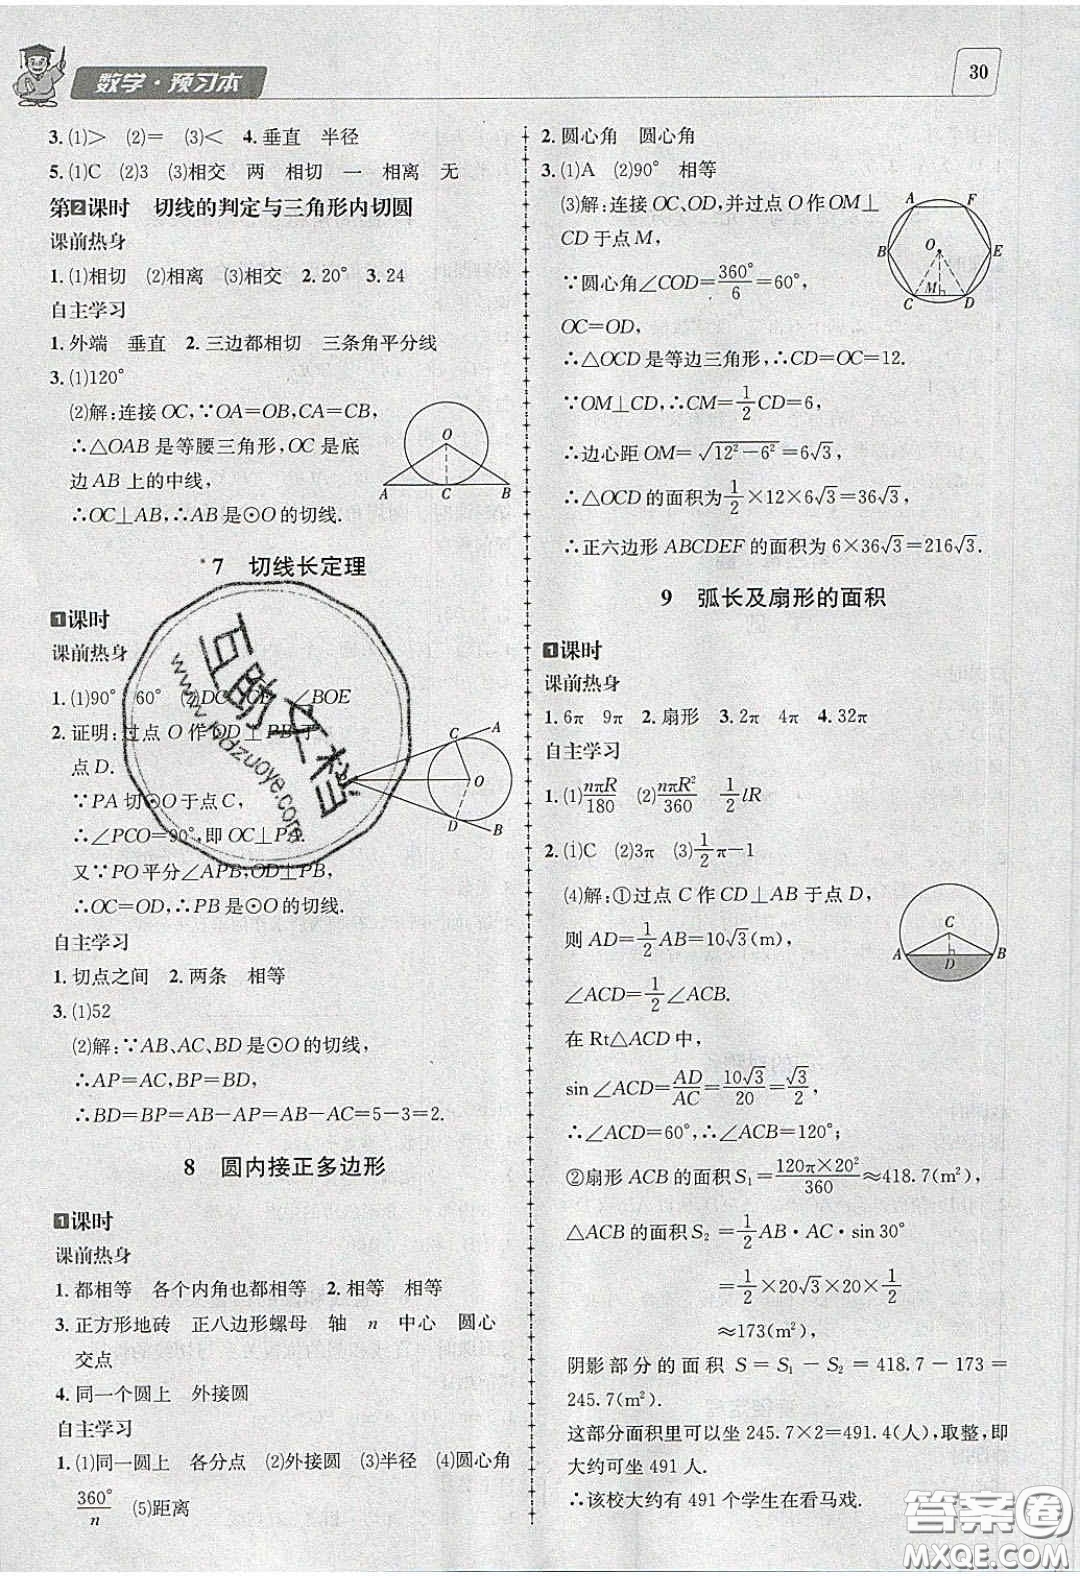 数学·预习本
30
3.(1)> (2)= (3)< 4.垂直 半径
5.(1)C (2)3 (3)相交 两 相切 一 相离 无
第2课时 切线的判定与三角形内切圆
课前热身
1.(1)相切 (2)相离 (3)相交 2.20° 3.24
自主学习
1.外端 垂直 2.三边都相切 三条角平分线
3.(1)120°
(2)解:连接OC,∵OA=OB,CA=CB,
∴△OAB是等腰三角形,OC是底
边AB上的中线,
∴OC⊥AB,∴AB是⊙O的切线.
O
A C B
7 切线长定理
1课时
课前热身
1.(1)90° 60° (2)DC ∠BOE
2.证明:过点O作OD⊥PB于
点D.
∵PA切⊙O于点C,
∴∠PCO=90°,即OC⊥PA.
又∵PO平分∠APB,OD⊥PB,
∴OC=OD,∴PB是⊙O的切线.
A
C
O
D
B
自主学习
1.切点之间 2.两条 相等
3.(1)52
(2)解:∵AB、AC、BD是⊙O的切线,
∴AP=AC,BP=BD,
∴BD=BP=AB-AP=AB-AC=5-3=2.
8 圆内接正多边形
1课时
课前热身
1.都相等 各个内角也都相等 2.相等 相等
3.正方形地砖 正八边形螺母 轴 n 中心 圆心
交点
4.同一个圆上 外接圆
自主学习
1.(1)同一圆上 各分点 (2)外接圆 (3)半径 (4)圆心角
360°/n (5)距离
2.圆心角 圆心角
3.(1)A (2)90° 相等
(3)解:连接OC、OD,并过点O作OM⊥
CD于点M,
∵圆心角∠COD=360°/6=60°,
OC=OD,
∴△OCD是等边三角形,∴CD=OC=12.
∵OM⊥CD,∴CM=1/2CD=6,
∴边心距OM=√(12²-6²)=6√3,
∴△OCD的面积为1/2×12×6√3=36√3,
∴正六边形ABCDEF的面积为6×36√3=216√3.
A F
B O E
C M D
9 弧长及扇形的面积
1课时
课前热身
1.6π 9π 2.扇形 3.2π 4π 4.32π
自主学习
1.(1)nπR/180 (2)nπR²/360 1/2 lR
2.(1)C (2)3π (3)1/2π-1
(4)解:①过点C作CD⊥AB于点D,
则AD=1/2AB=10√3(m),
∠ACD=1/2∠ACB.
在Rt△ACD中,
sin∠ACD=AD/AC=10√3/20=√3/2,
∴∠ACD=60°,∴∠ACB=120°;
②扇形ACB的面积S₁=120π×20²/360≈418.7(m²),
△ACB的面积S₂=1/2AB·AC·sin30°
=1/2×20√3×20×1/2
≈173(m²),
阴影部分的面积S=S₁-S₂=418.7-173=
245.7(m²).
这部分面积里可以坐245.7×2=491.4(人),取整,即
大约可以坐491人.
∴该校大约有491个学生在看马戏.
C
A D B
互助文档
www.hdzuoye.com
答案圈
MXQE.COM